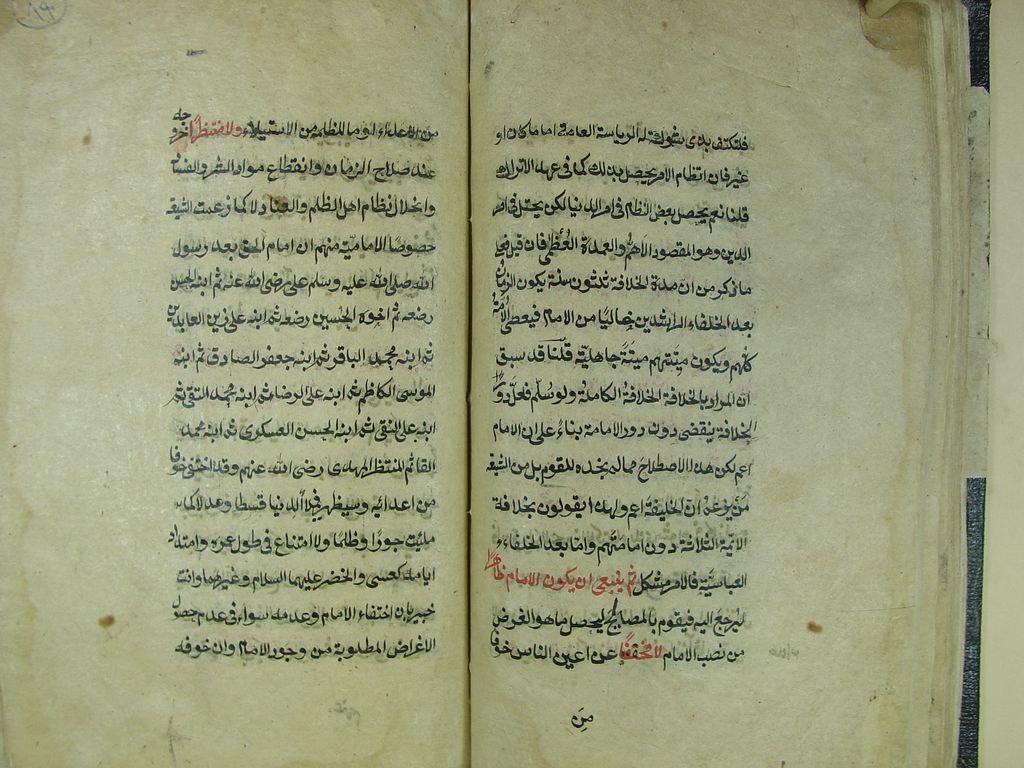 فليكتف بذى شوكة له الرياسة العامة اماما كان او
غيره فان انتظام الامر يحصل بذلك كما فى عهد الاتراك
قلنا نعم يحصل بعض النظام فى امر الدنيا لكن يختل فى امر
الدين وهو المقصود الاهم والعمدة العظمى فان قيل فعلى
ما ذكر من ان مدة الخلافة ثلثون سنة يكون الزمان
بعد الخلفاء الراشدين خاليا من الامام فيعصى الامة
كلهم ويكون ميتتهم ميتة جاهلية قلنا قد سبق
ان المراد بالخلافة الخلافة الكاملة ولو سلم فلعل دور
الخلافة ينقضى دون دور الامامة بناء على ان الامام
اعم لكن هذا الاصطلاح مما لم نجده للقوم بل من الشيعة
من يزعم ان الخليفة اعم ولهذا يقولون بخلافة
الائمة الثلاثة دون امامتهم واما بعد الخلفاء
العباسية فالامر مشكل ثم ينبغى ان يكون الامام ظاهرا
ليرجع اليه فيقوم بالمصالح ليحصل ما هو الغرض
من نصب الامام لا مختفيا عن اعين الناس خوفا
من
من الاعداء وما للظلمة من الاستيلاء ولا منتظرا خروجه
عند صلاح الزمان وانقطاع مواد الشر والفساد
وانحلال نظام اهل الظلم والعناد لا كما زعمت الشيعة
خصوصا الامامية منهم ان امام الحق بعد رسول
الله صلى الله عليه وسلم على رضى الله عنه ثم ابنه الحسن
رضعه ثم اخوه الحسين رضعه ثم ابنه على زين العابدين
ثم ابنه محمد الباقر ثم ابنه جعفر الصادق ثم ابنه
الموسى الكاظم ثم ابنه على الرضاء ثم ابنه محمد التقى ثم
ابنه على النقى ثم ابنه الحسن العسكرى ثم ابنه محمد
القائم المنتظر المهدى رضى الله عنهم وقد اختفى خوفا
من اعدائه وسيظهر فيملأ الدنيا قسطا وعدلا كما
ملئت جورا وظلما ولا امتناع فى طول عمره وامتداد
ايامه كعيسى والخضر عليهما السلام وغيرهما وانت
خبير بان اختفاء الامام وعدمه سواء فى عدم حصول
الاغراض المطلوبة من وجود الامام وان خوفه